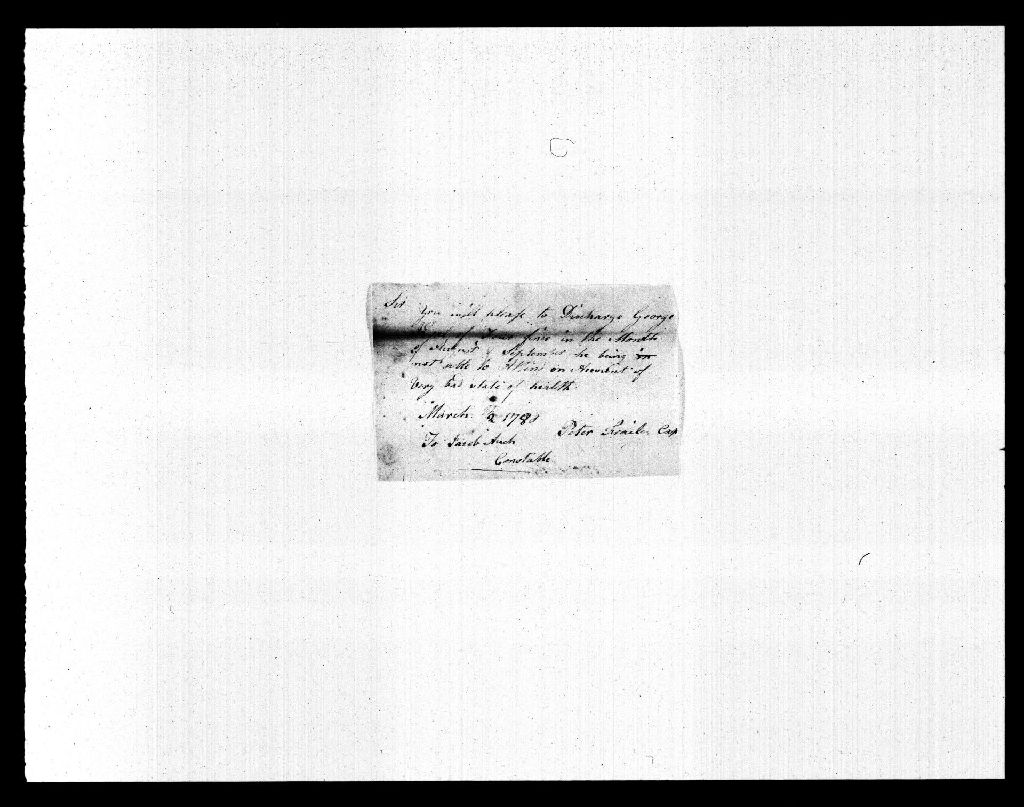 Sir
You will please to Discharge George
of fine in the Month
of August & September he being
not able to Attend on Account of
Very bad state of health
March 1788
Peter Cap
To Jacob Auch
Constable